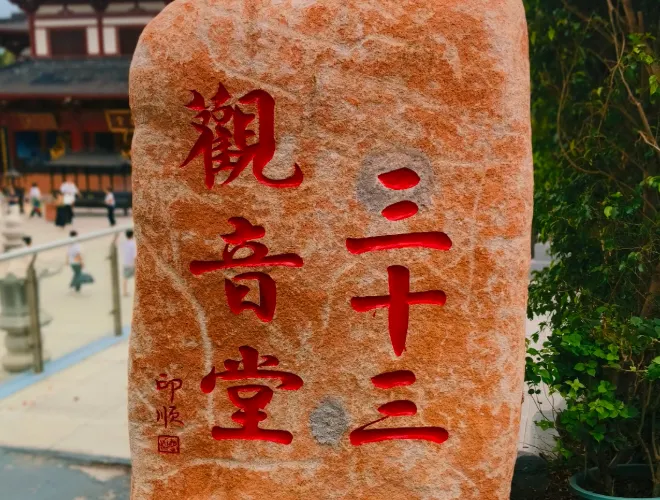 三十三
觀音堂
印順